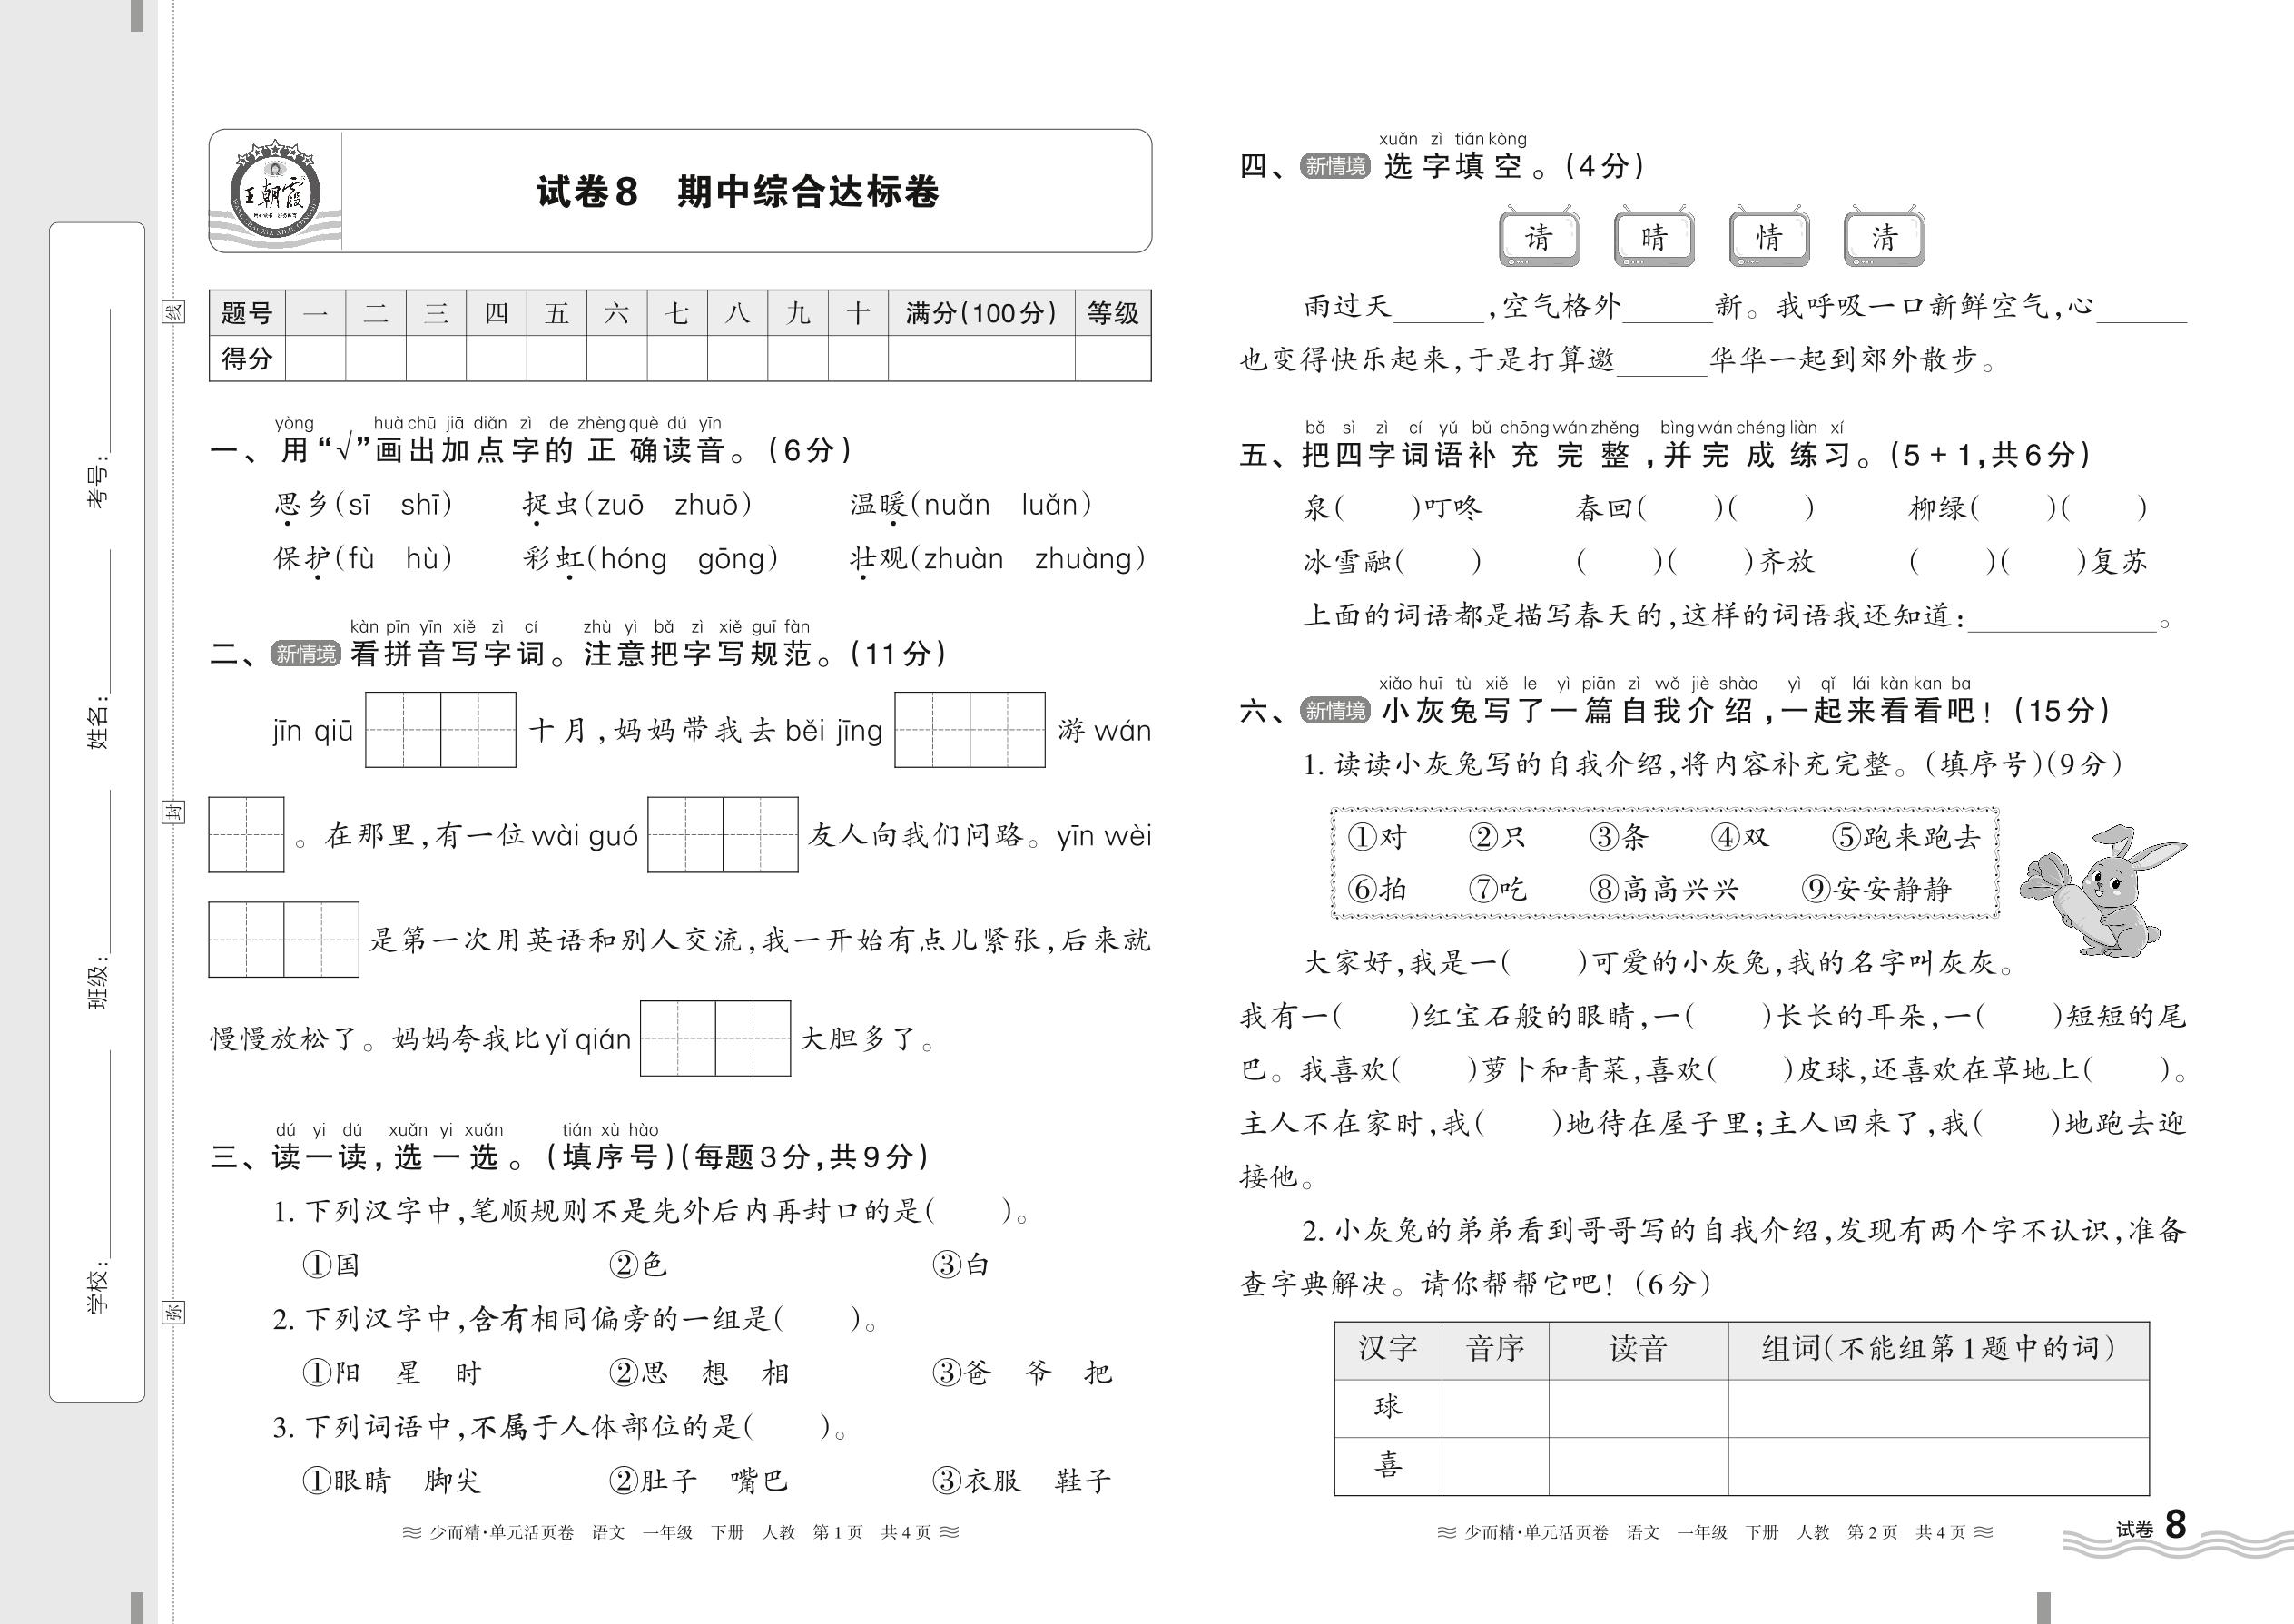 考号:
姓名:
班级:
学校:
线
封
弥
王朝霞
试卷8 期中综合达标卷
题号 一 二 三 四 五 六 七 八 九 十 满分(100分) 等级
得分
yòng huà chū jiā diǎn zì de zhèng què dú yīn
一、用“√”画出加点字的正确读音。(6分)
思乡(sī shī) 捉虫(zuō zhuō) 温暖(nuǎn luǎn)
保护(fù hù) 彩虹(hóng gōng) 壮观(zhuàn zhuàng)
kàn pīn yīn xiě zì cí zhù yì bǎ zì xiě guī fàn
二、新情境 看拼音写字词。注意把字写规范。(11分)
jīn qiū 十月,妈妈带我去 běi jīng 游 wán
。在那里,有一位 wài guó 友人向我们问路。yīn wèi
是第一次用英语和别人交流,我一开始有点儿紧张,后来就
慢慢放松了。妈妈夸我比 yǐ qián 大胆多了。
dú yi dú xuǎn yi xuǎn tián xù hào
三、读一读,选一选。(填序号)(每题3分,共9分)
1. 下列汉字中,笔顺规则不是先外后内再封口的是( )。
①国 ②色 ③白
2. 下列汉字中,含有相同偏旁的一组是( )。
①阳 星 时 ②思 想 相 ③爸 爷 把
3. 下列词语中,不属于人体部位的是( )。
①眼睛 脚尖 ②肚子 嘴巴 ③衣服 鞋子
少而精·单元活页卷 语文 一年级 下册 人教 第1页 共4页
xuǎn zì tián kòng
四、新情境 选字填空。(4分)
请 晴 情 清
雨过天______,空气格外______新。我呼吸一口新鲜空气,心______
也变得快乐起来,于是打算邀______华华一起到郊外散步。
bǎ sì zì cí yǔ bǔ chōng wán zhěng bìng wán chéng liàn xí
五、把四字词语补充完整,并完成练习。(5+1,共6分)
泉( )叮咚 春回( )( ) 柳绿( )( )
冰雪融( ) ( )( )齐放 ( )( )复苏
上面的词语都是描写春天的,这样的词语我还知道:____________。
xiǎo huī tù xiě le yì piān zì wǒ jiè shào yì qǐ lái kàn kan ba
六、新情境 小灰兔写了一篇自我介绍,一起来看看吧!(15分)
1. 读读小灰兔写的自我介绍,将内容补充完整。(填序号)(9分)
①对 ②只 ③条 ④双 ⑤跑来跑去
⑥拍 ⑦吃 ⑧高高兴兴 ⑨安安静静
大家好,我是一( )可爱的小灰兔,我的名字叫灰灰。
我有一( )红宝石般的眼睛,一( )长长的耳朵,一( )短短的尾
巴。我喜欢( )萝卜和青菜,喜欢( )皮球,还喜欢在草地上( )。
主人不在家时,我( )地待在屋子里;主人回来了,我( )地跑去迎
接他。
2. 小灰兔的弟弟看到哥哥写的自我介绍,发现有两个字不认识,准备
查字典解决。请你帮帮它吧!(6分)
汉字 音序 读音 组词(不能组第1题中的词)
球
喜
少而精·单元活页卷 语文 一年级 下册 人教 第2页 共4页
试卷 8